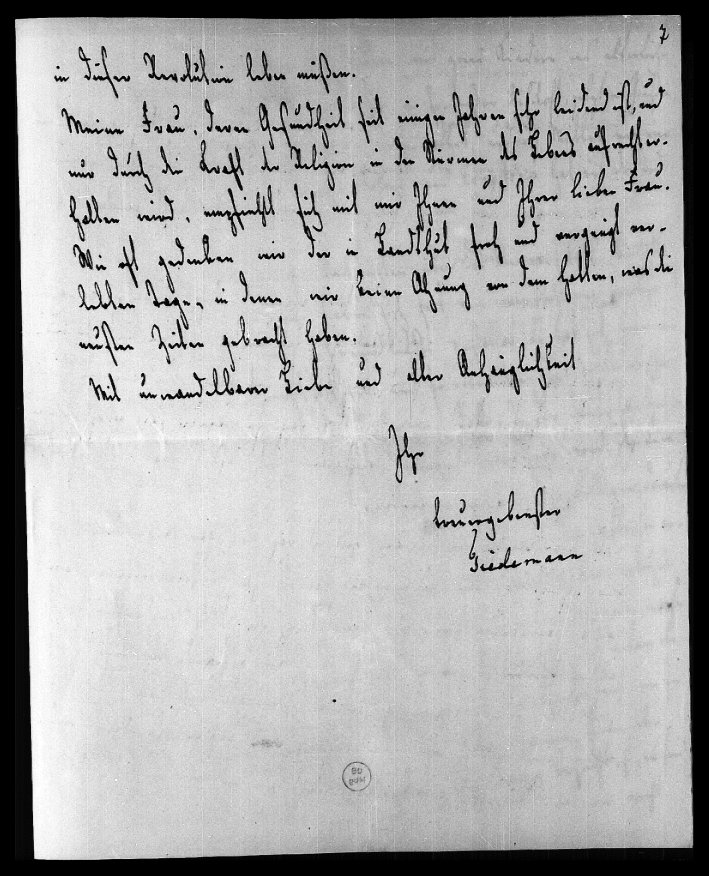 7
in dieser Revolution leben müßen.
Meine Frau, deren Gesundheit seit einigen Jahren sehr leidend ist, und
nur durch die Kraft der Religion in den Stürmen des Lebens aufrechter-
halten wird, empfiehlt sich mit mir Ihnen und Ihrer lieben Frau.
Wie oft gedenken wir der in Landshut froh und vergnügt ver-
lebten Tage, in denen wir keine Ahnung von dem hatten, was die
neusten Zeiten gebracht haben.
Mit unwandelbarer Liebe und alter Anhänglichkeit
Ihr
treuergebenster
Tiedemann